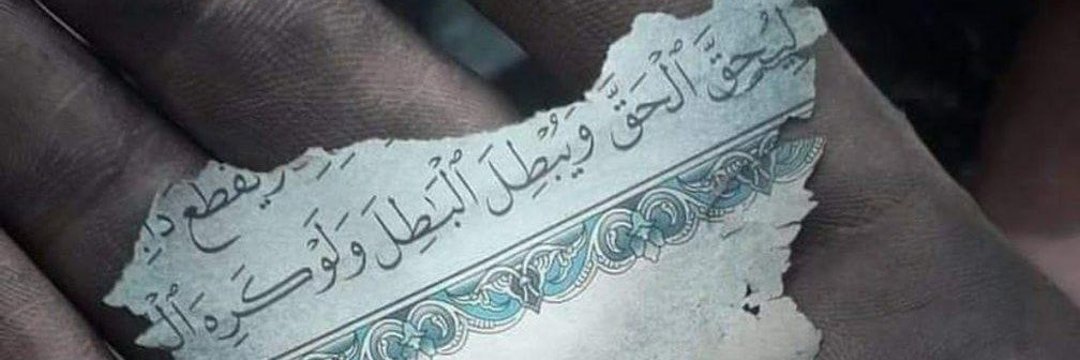 ويقطع دا
لِيُحِقَّ ٱلْحَقَّ وَيُبْطِلَ ٱلْبَٰطِلَ وَلَوْ كَرِهَ ٱلْ